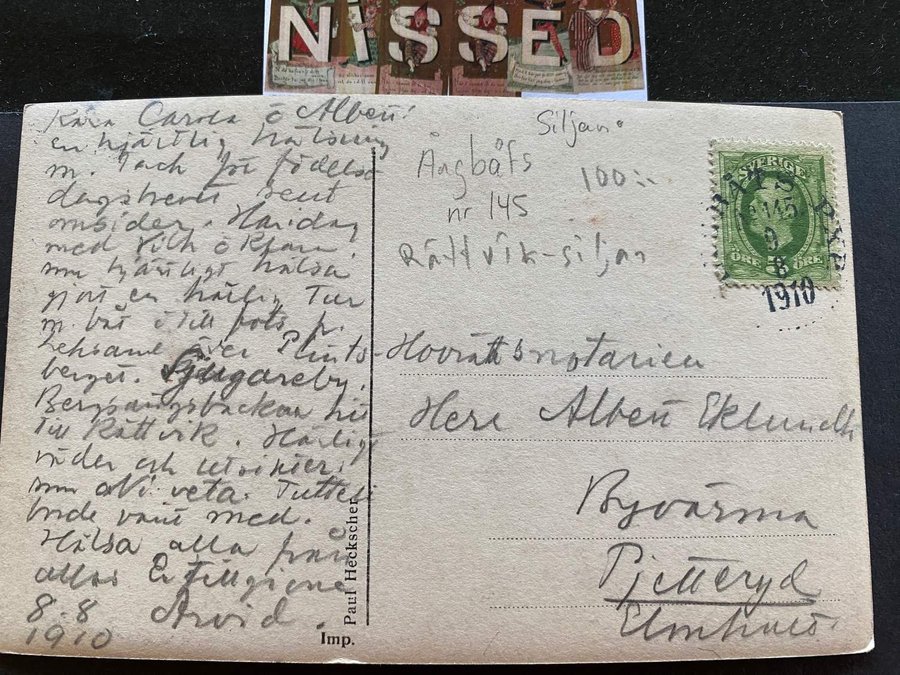 NISSED
Kära Carola o Albert!
en hjärtlig hälsning
m. Tack för födelse
dagsbrevet sent
omsider. Har idag
med
som hjärtligt hälsa
gjort en härlig Tur
m. båt o till fots fr.
Leksand över Plints-
berget. Sjugareby,
Bergsängsbackan hit
till Rättvik. Härligt
väder och utsikter,
som ni veta.
borde varit med.
Hälsa alla från
allas Er tillgifne
8.8 Arvid.
1910
Paul Heckscher
Imp.
Siljan
Ångbåts
100:-
nr 145
Rättvik-siljan
SVERIGE
5
ÖRE ÖRE
145
9
8
1910
Hovrättsnotarien
Herr Albert Eklundh
Byvärma
Pjetteryd
Elmhult.